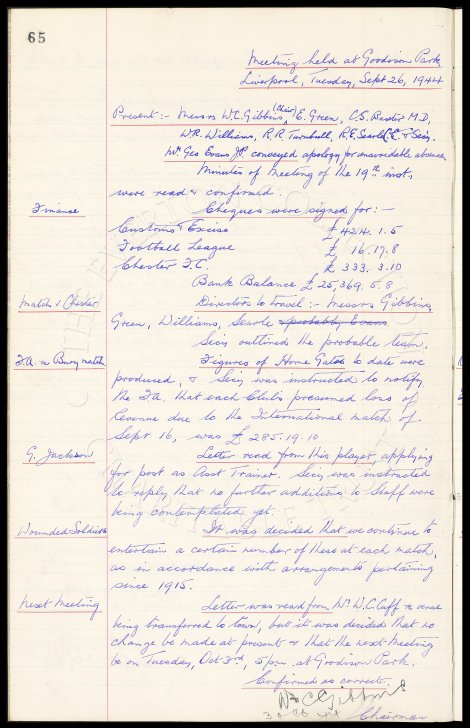 65
Meeting held at Goodison Park,
Liverpool, Tuesday, Sept 26, 1944
Present :- Messrs W.C. Gibbins (Chair), E. Green, C.S. Baxter M.D,
W.R. Williams, R.R. Turnbull, R.E. Searle, & Secy.
Mr. Geo Evans J.P. conveyed apology for unavoidable absence.
Minutes of Meeting of the 19th inst,
were read & confirmed.
Finance
Cheques were signed for :-
Customs & Excise £ 424. 1. 5
Football League £ 16. 17. 8
Chester F.C. £ 333. 3. 10
Bank Balance £ 25,369. 5. 8
Match v Chester
Directors to travel :- Messrs Gibbins,
Green, Williams, Searle & probably Evans.
Secy outlined the probable team.
F.A. re Bury match
Figures of Home Gates to date were
produced, & Secy was instructed to notify
the F.A. that each Club's presumed loss of
Revenue due to the International match of
Sept 16, was £ 285. 19. 10
G. Jackson
Letter read from this player, applying
for post as Asst Trainer. Secy was instructed
to reply that no further additions to Staff were
being contemplated yet.
Wounded Soldiers
It was decided that we continue to
entertain a certain number of these at each match,
as in accordance with arrangements pertaining
since 1915.
Next Meeting
Letter was read from Mr W.C. Cuff re venue
being transferred to town, but it was decided that no
change be made at present & that the next Meeting
be on Tuesday, Oct 3rd, 5pm. at Goodison Park.
Confirmed as correct.
W C Gibbins
Chairman